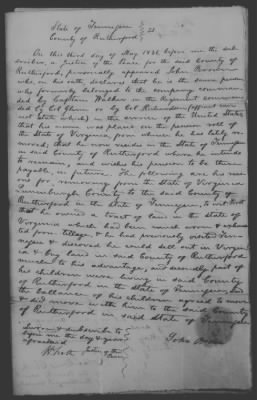 State of Tennessee
County of Rutherford } SS
On this third day of May 1826 before me the sub-
scriber, a Justice of the Peace for the said County of
Rutherford, personally appeared John
who, on his oath, declares that he is the same person
who formerly belonged to the company comman-
ded by Captain in the Regiment comman-
ded by Col and by Col Richardson (official
not State which) in the service of the United States
that his name was placed on the pension roll of
the State of Virginia from whence he has lately re-
moved; that he now resides in the State of Tennessee
in said County of Rutherford where he intends
to remain, and wishes his pension to be there
payable, in future. The following are his reas-
ons for removing from the State of Virginia
Lunenburgh County to the said County of
Rutherford in the State of Tennessee, to wit, First
that he owned a tract of land in the State of
Virginia which had been much worn & exhaus-
ted from tillage, & he had previously visited Ten-
nessee & discovered he could sell out in Virgini
a & buy land in said County of Rutherford
much to his advantage; and secondly part of
his children were living in said County
of Rutherford in the State of Tennessee, and
the ballance of his children agreed to move
& did move with him to the said County
of Rutherford in said State of Tennessee
Sworn & subscribed to
before me the day & year
aforesaid
John